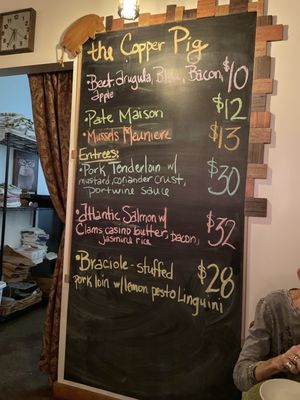 the Copper Pig
• Beet, Arugula, Bleu, Bacon, $10
apple
• Pate Maison $12
• Mussels Meuniere $13
Entrees:
• Pork Tenderloin w/ $30
mustard, coriander crust,
portwine sauce
• Atlantic Salmon w/ $32
Clams casino butter, bacon,
jasmine rice
• Braciole - stuffed $28
pork loin w/ lemon pesto Linguini